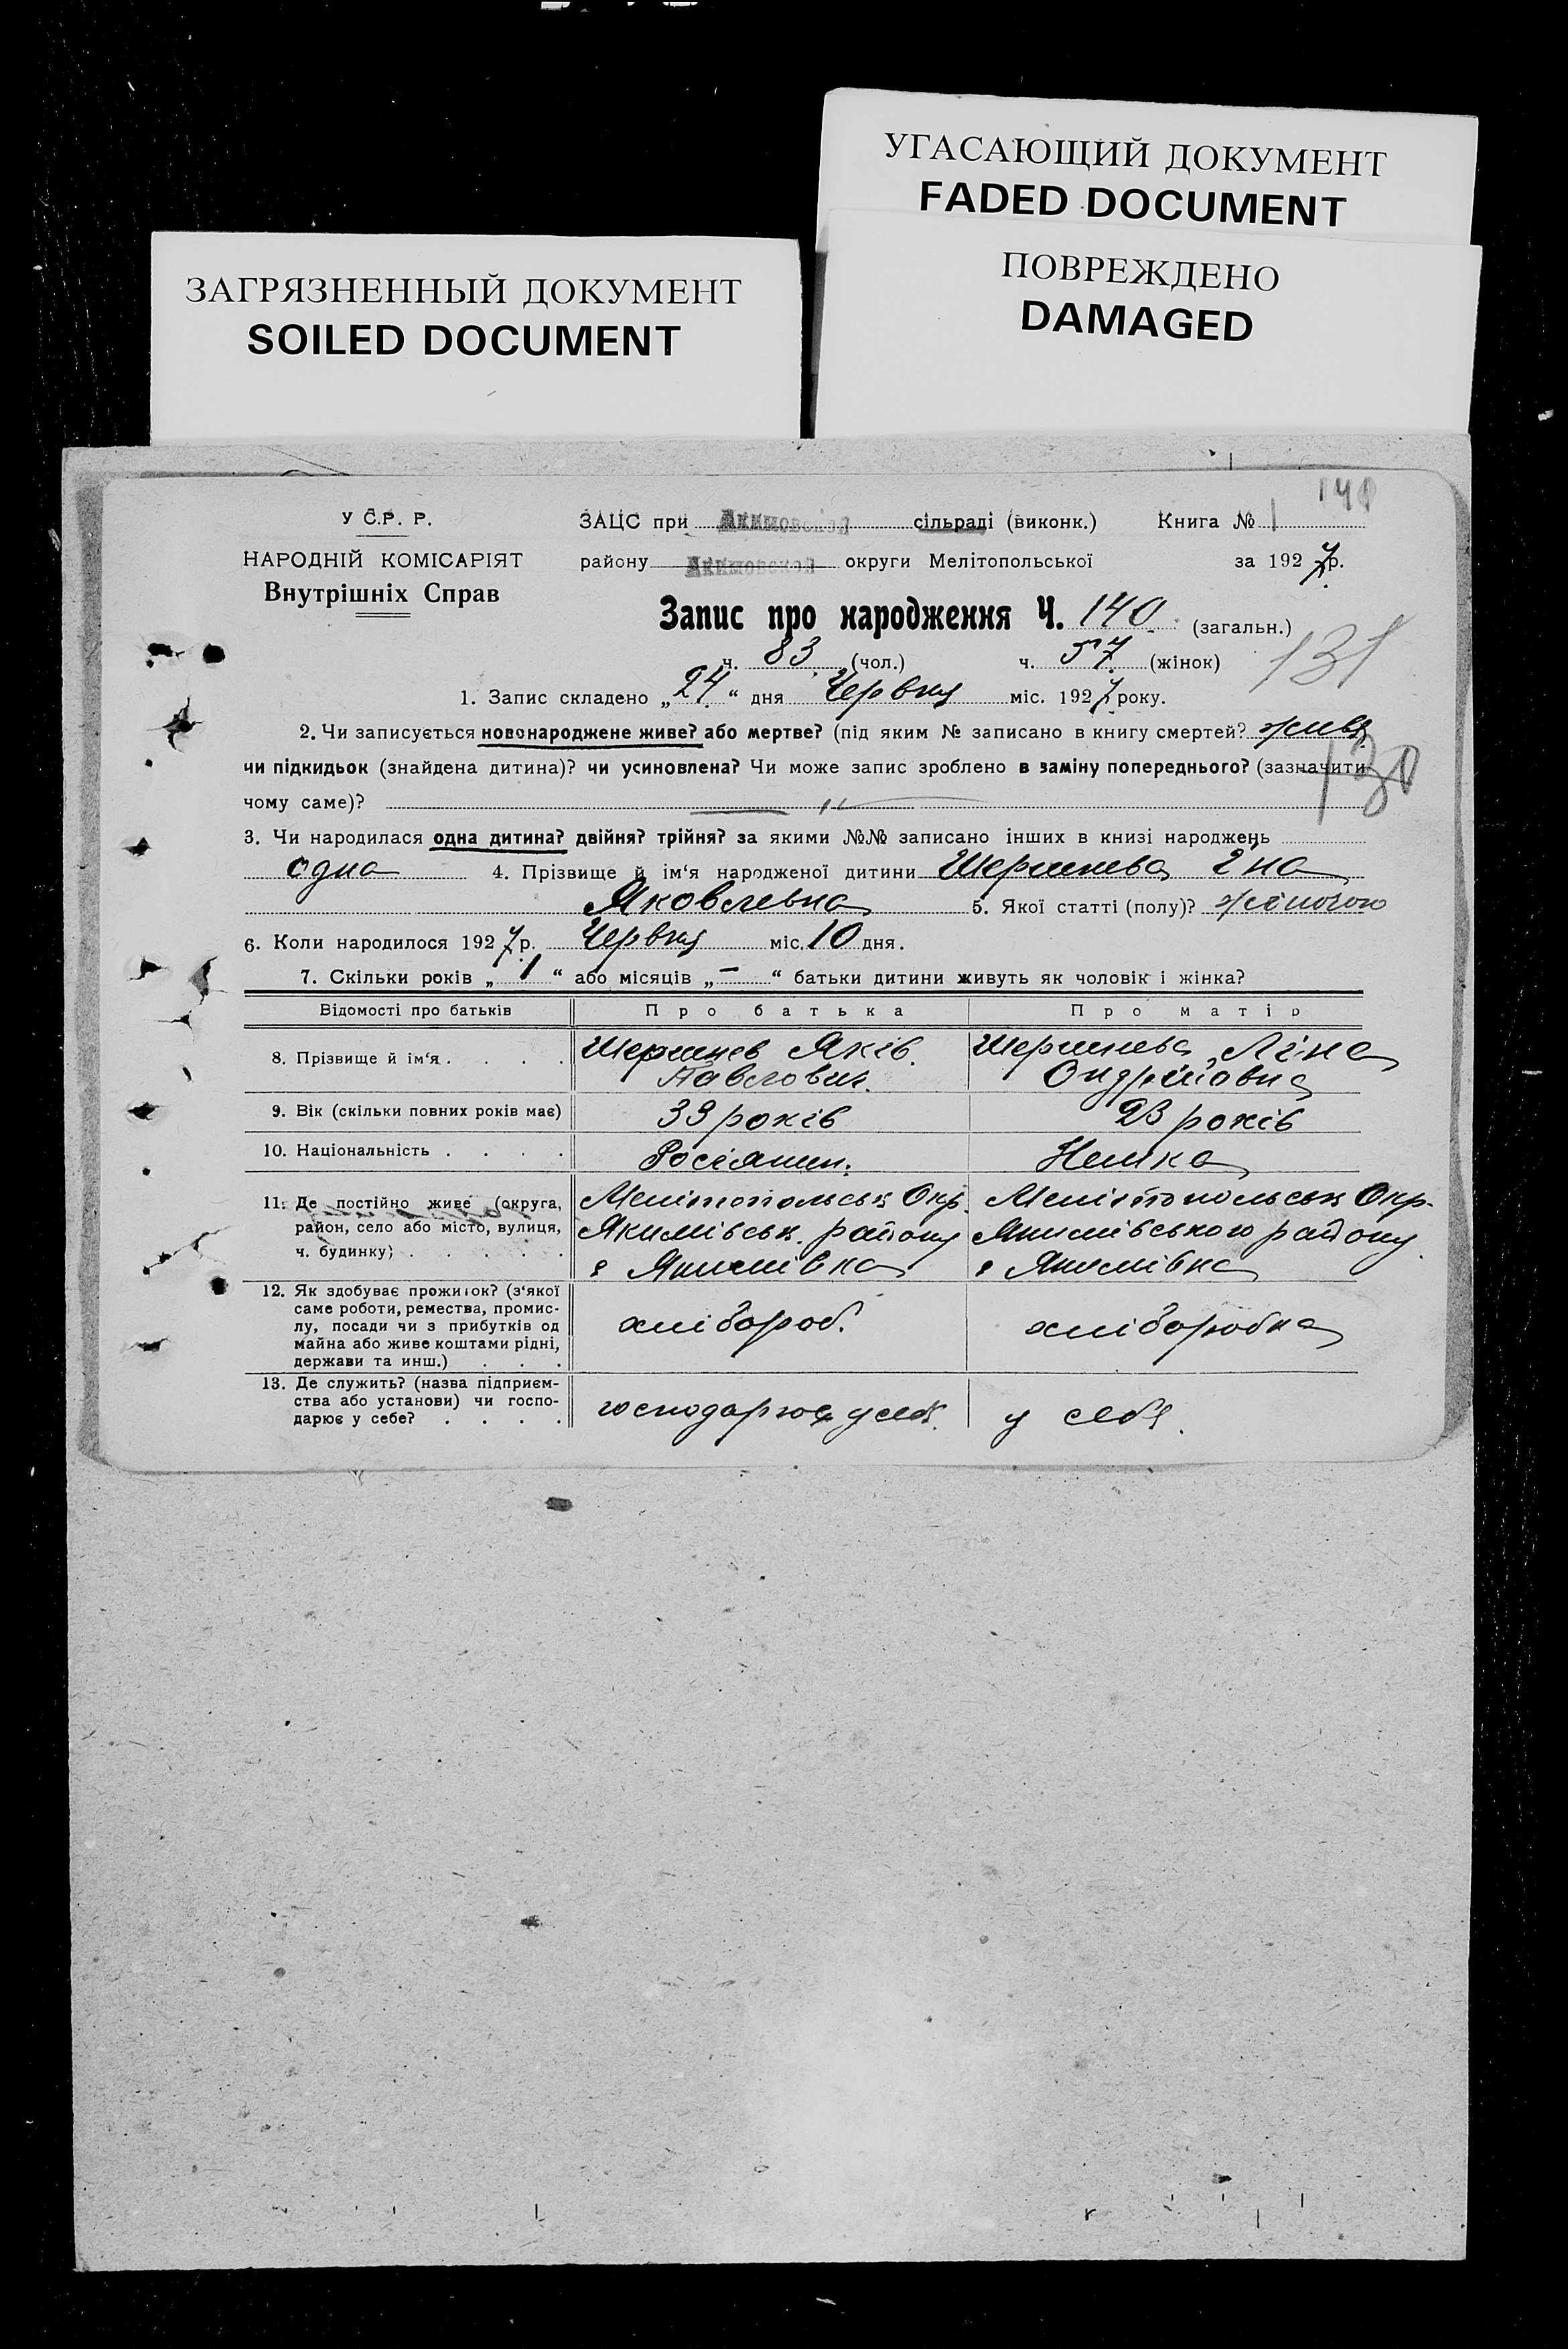 УГАСАЮЩИЙ ДОКУМЕНТ
FADED DOCUMENT
ПОВРЕЖДЕНО
DAMAGED
ЗАГРЯЗНЕННЫЙ ДОКУМЕНТ
SOILED DOCUMENT
140
У С.Р. Р.
НАРОДНІЙ КОМІСАРІЯТ
Внутрішніх Справ
ЗАЦС при Акимовской сільраді (виконк.) Книга № 1
району Акимовской округи Мелітопольської за 1927 р.
Запис про народження Ч. 140 (загальн.)
131
ч. 83 (чол.) ч. 57 (жінок)
1. Запис складено „24“ дня Червня міс. 1927 року.
2. Чи записується новонароджене живе? або мертве? (під яким № записано в книгу смертей? живе
130
чи підкидьок (знайдена дитина)? чи усиновлена? Чи може запис зроблено в заміну попереднього? (зазначити
чому саме)?
3. Чи народилася одна дитина? двійня? трійня? за якими №№ записано інших в книзі народжень
одна 4. Прізвище й ім‘я народженої дитини
Яковлевна 5. Якої статті (полу)? жіночою
6. Коли народилося 1927 р. Червня міс. 10 дня.
7. Скільки років „1“ або місяців „–“ батьки дитини живуть як чоловік і жінка?
Відомості про батьків Про батька Про матір
8. Прізвище й ім‘я . . . . Яків Ліна
Павлович. Ондрійовна
9. Вік (скільки повних років має) 33 років 23 років
10. Національність . . . . Росіянин. Немка
11. Де постійно живе (округа, Мелітопольськ Окр. Мелітопольськ Окр.
район, село або місто, вулиця, Якимівськ. району Якимівського району
ч. будинку) . . . . . с Якимівка с Якимівка
12. Як здобуває прожиток? (з‘якої
саме роботи, ремества, промис-
лу, посади чи з прибутків од хлібороб. хліборобка
майна або живе коштами рідні,
держави та инш.) . . .
13. Де служить? (назва підприєм-
ства або установи) чи госпо- господарює у себе. у себе.
дарює у себе? . . . .